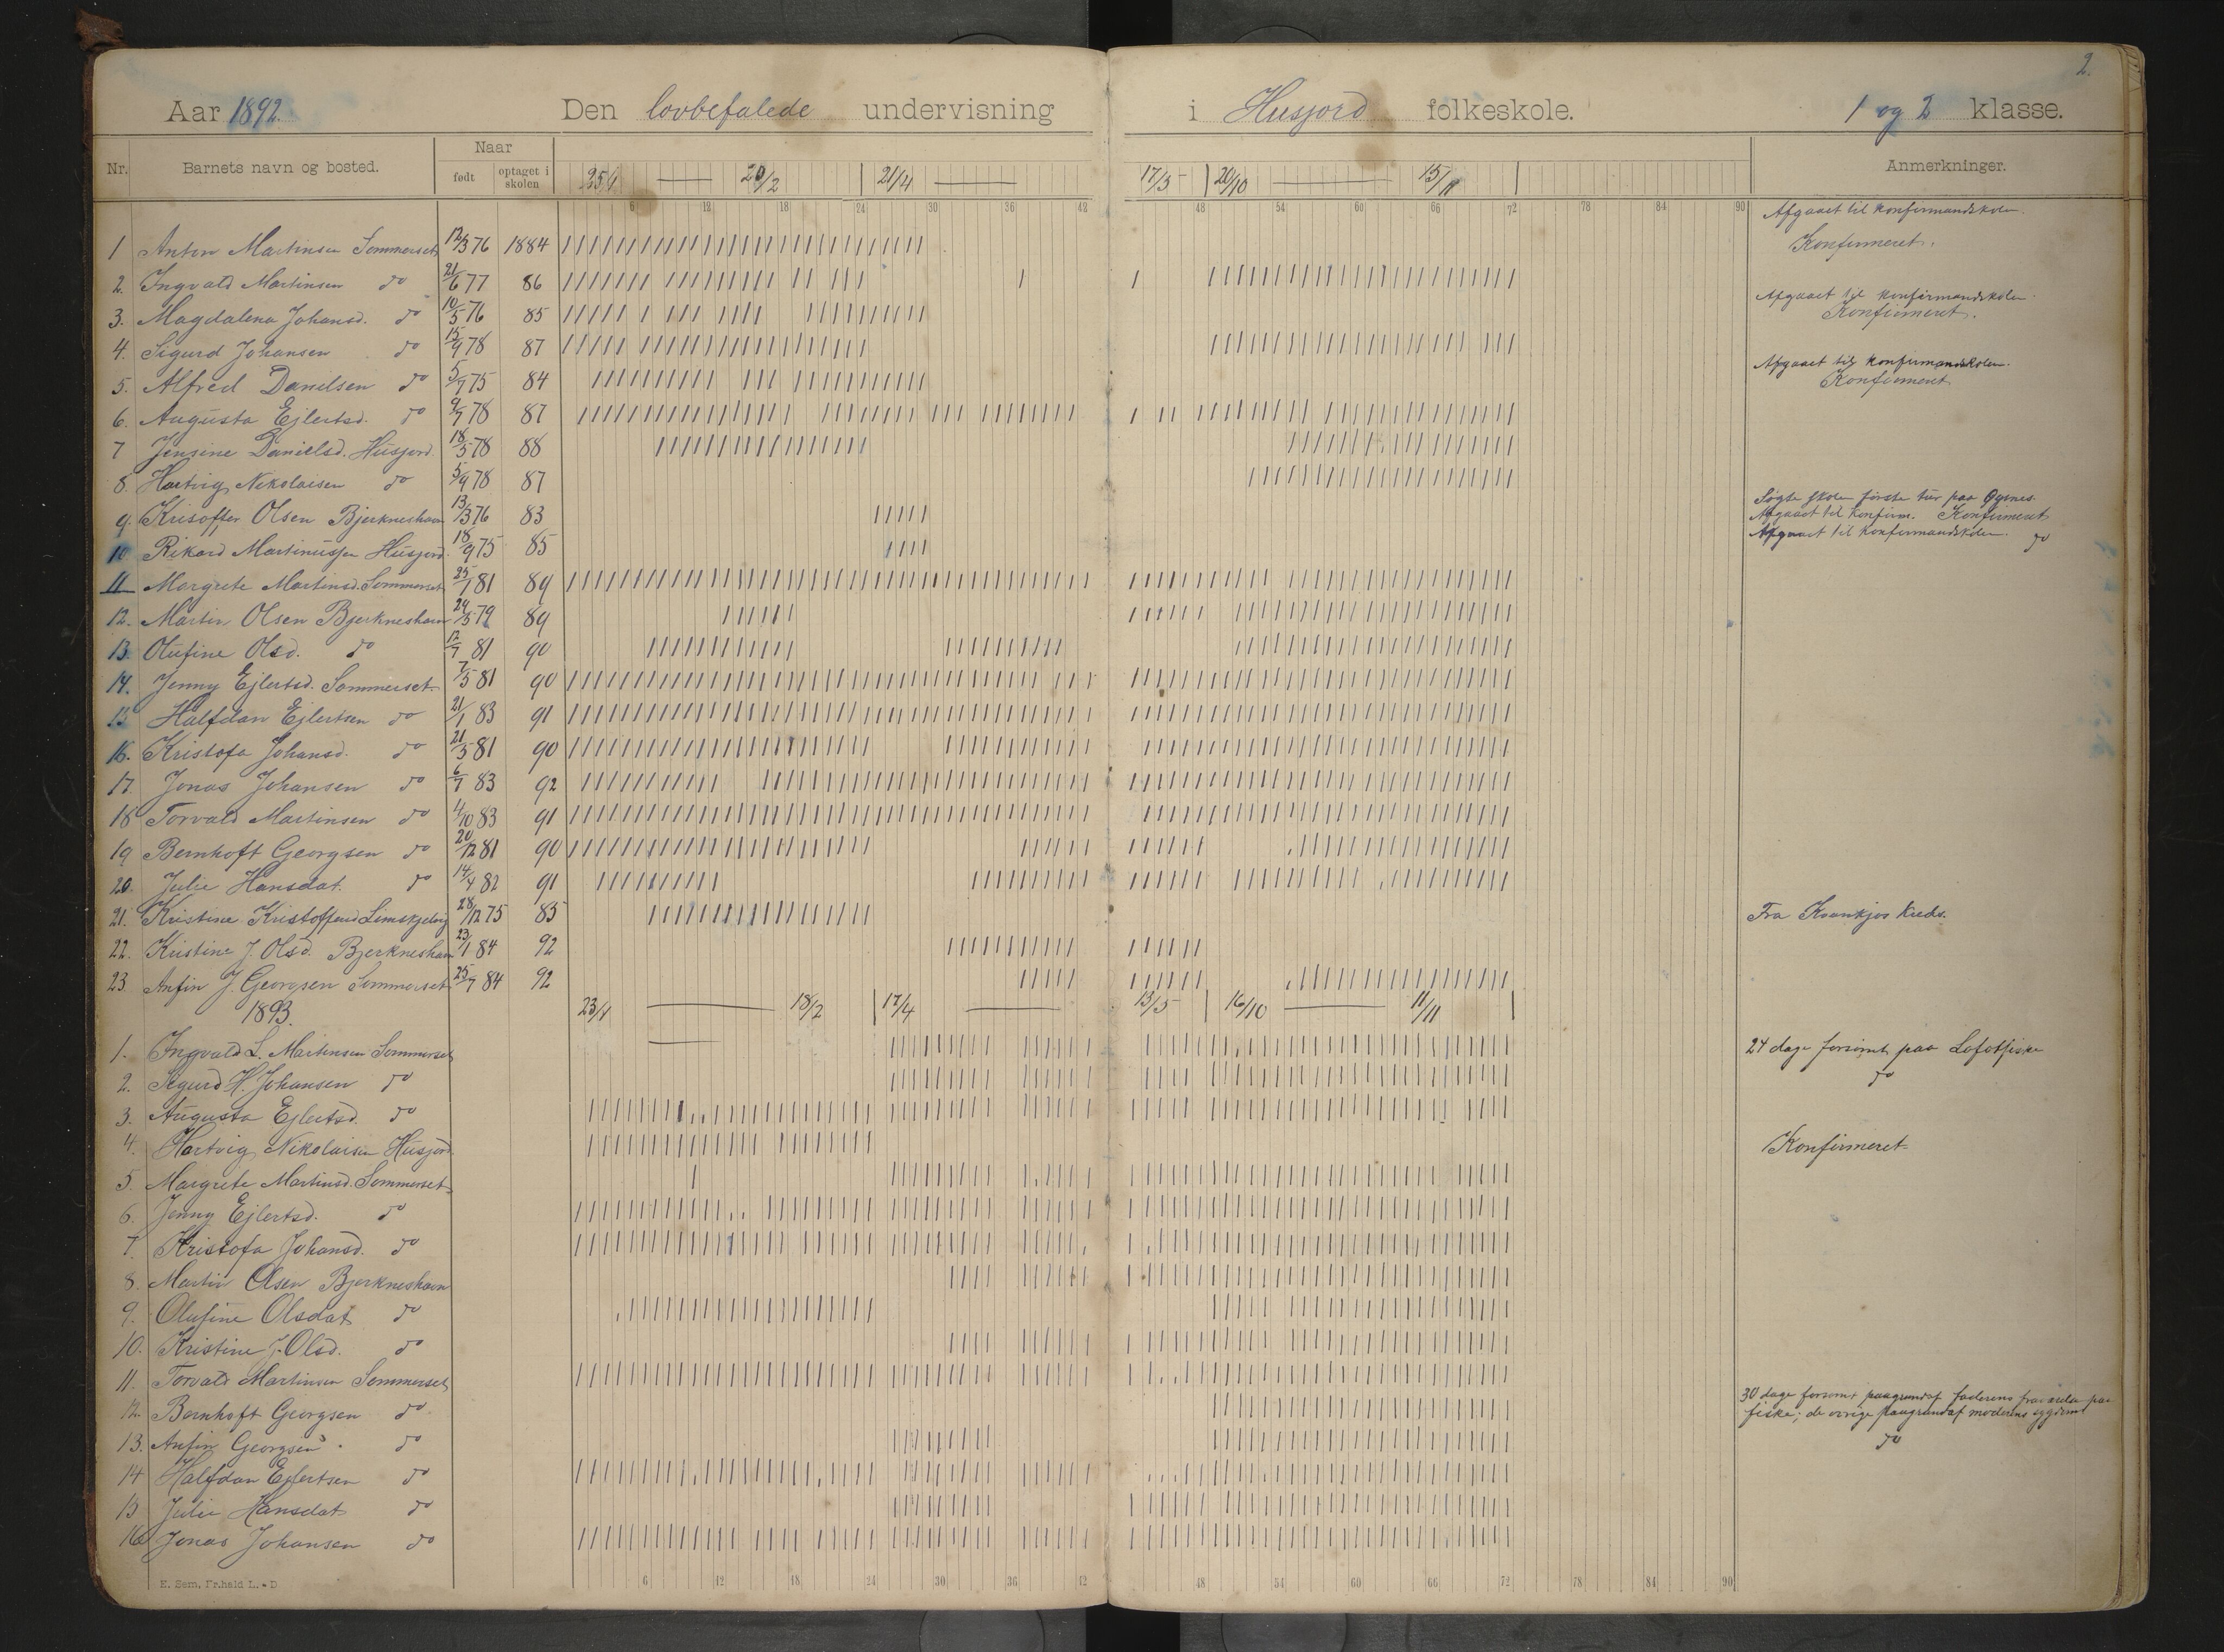 2.
Aar 1892. Den lovbefalede undervisning i Husjord folkeskole. 1 og 2 klasse.
Nr. Barnets navn og bosted. Naar født optaget i skolen Anmerkninger.
25/1 — 20/2 21/4 — 17/5 20/10 — 15/11
6 12 18 24 30 36 42 48 54 60 66 72 78 84 90
1 Anton Martinsen Sommerset 12/3 76 1884 Afgaaet til konfirmandskolen. Konfirmeret.
2. Ingvald Martinsen do 21/6 77 86
3. Magdalena Johansd. do 10/5 76 85 Afgaaet til konfirmandskolen. Konfirmeret.
4. Sigurd Johansen do 15/9 78 87
5. Alfred Danilsen do 5/9 75 84 Afgaaet til konfirmandskolen. Konfirmeret
6. Augusta Ejlertsd. do 9/7 78 87
7 Jensine Danielsd. Husjord. 18/5 78 88
8. Hartvig Nikolaisen do 5/9 78 87
9. Kristoffer Olsen Bjerkneshavn 13/3 76 83 Søgte skolen første tur paa Øynes. Afgaaet til Konfirm. Konfirmeret
10 Rikard Martinussen Husjord. 18/9 75 85 Afgaaet til konfirmandskolen. do
11 Margrete Martinsd. Sommerset 25/1 81 89
12. Martin Olsen Bjerkneshavn 24/5 79 89
13. Olufine Olsd. do 12/7 81 90
14. Jenny Ejlertsd. Sommerset 7/5 81 90
15 Halfdan Ejlertsen do 21/1 83 91
16. Kristofa Johansd. do 21/5 81 90
17. Jonas Johansen do 6/7 83 92
18 Torvald Martinsen do 4/10 83 91
19 Bernhoft Georgsen do 20/12 81 90
20. Julie Hansdat. do 14/4 82 91
21. Kristine Kristoffersd 28/12 75 85 Fra Kvankjos Kreds.
22. Kristine J. Olsd. Bjerkneshavn 23/1 84 92
23. Anfin J. Georgsen Sommerset 25/7 84 92
1893. 23/1 — 18/2 17/4 — 13/5 16/10 — 11/11
1. Ingvald L. Martinsen Sommerset 24 dage forsømt paa Lofotfiske
2. Sigurd H. Johansen do do
3. Augusta Ejlertsd. do
4. Hartvig Nikolaisen Husjord. Konfirmeret
5. Margrete Martinsd. Sommerset
6. Jenny Ejlertsd. do
7. Kristofa Johansd. do
8. Martin Olsen Bjerkneshavn
9. Olufine Olsdat do
10. Kristine J. Olsd. do
11. Torvald Martinsen Sommerset
12. Bernhoft Georgsen do 30 dage forsømt paagrundaf faderens fravær paa
fiske; de øvrige paagrundaf moderens sygdom
13. Anfin Georgsen do do
14 Halfdan Ejlertsen do
15 Julie Hansdat do
16 Jonas Johansen do
6 12 18 24 30 36 42 48 54 60 66 72 78 84 90
E. Sem, Fr.hald L. D